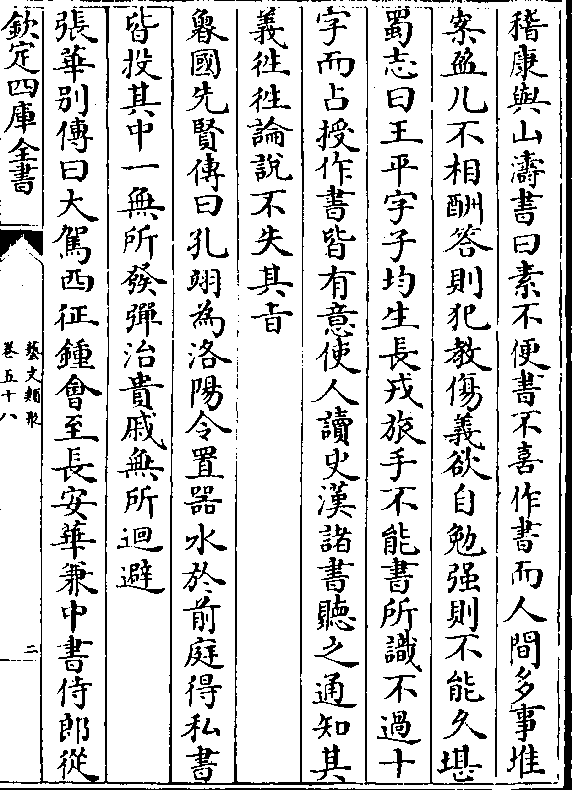 稽康與山濤書曰素不便書不喜作書而人間多事堆
案盈几不相酬答則犯教傷義欲自勉强則不能久堪
蜀志曰王平字子均生長戎旅手不能書所識不過十
字而占授作書皆有意使人讀史漢諸書聽之通知其
義徃徃論說不失其㫖
魯國先賢傳曰孔翊為洛陽令置器水於前庭得私書
皆投其中一無所發彈治貴戚無所迴避
張華别傳曰大駕西征鍾會至長安華兼中書侍郎從
欽定四庫全書
藝文類聚
卷五十八
二